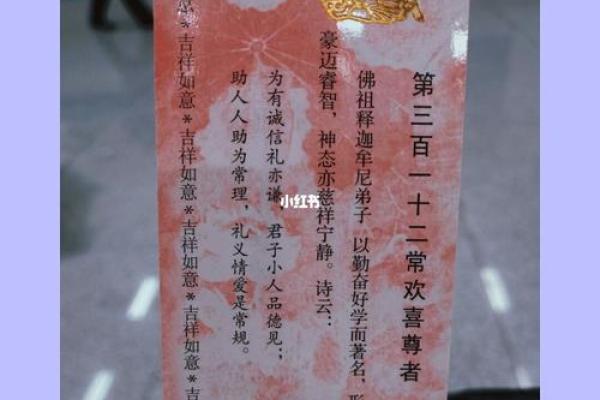 第三百一十二常欢喜尊者
佛祖释迦牟尼弟子 以勤奋好学而著名，形
豪迈睿智，神态亦慈祥宁静。诗云：
为有诚信礼亦谦，君子小人品德见；
助人人助为常理，礼义情爱是常规。
意*吉祥如意*吉祥如意*吉祥如意*吉祥如意*吉
小红书